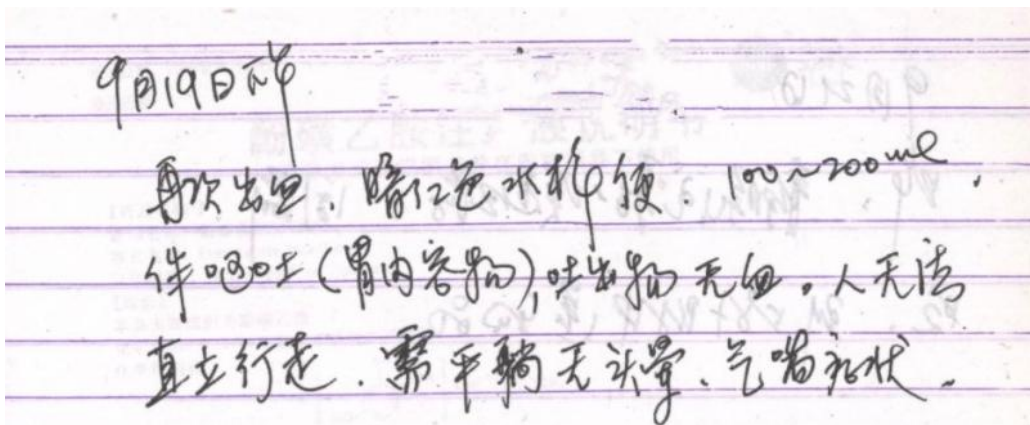 9月19日下午
再次出血、暗红色水样便、100~200ml、
伴呕吐(胃内容物),吐出物无血。人无法
直立行走、需平躺无头晕、气喘症状。